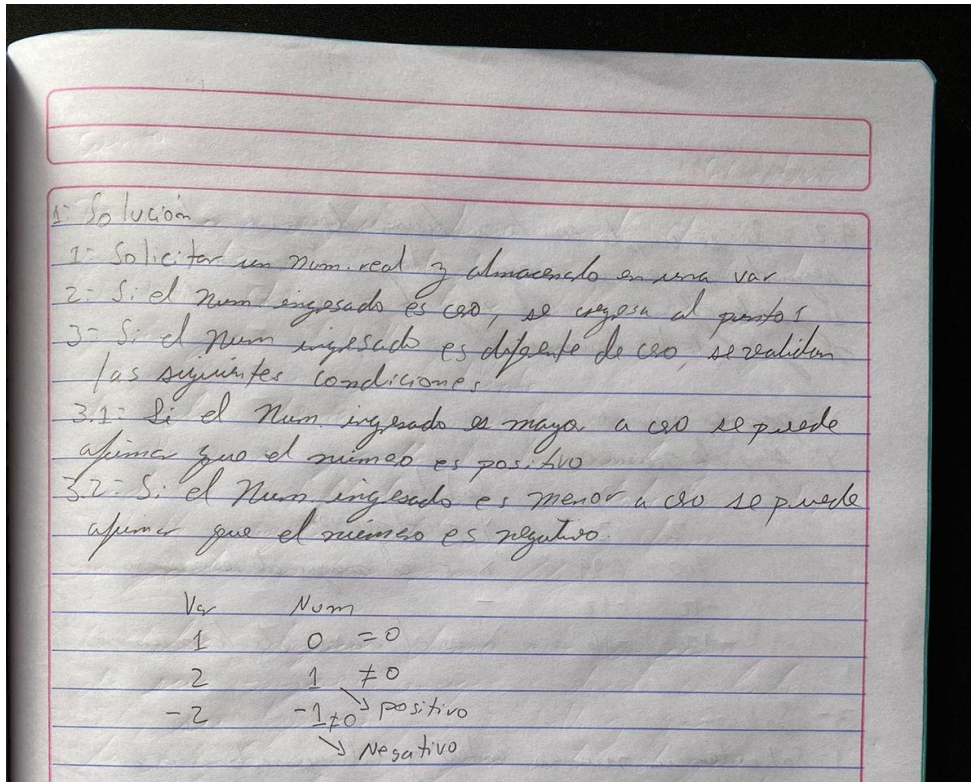 1- Solución
1- Solicitar un num. real y almacenelo en una var
2- Si el num ingresado es cero, se regresa al punto 1
3- Si el num ingresado es diferente de cero, se validan
las siguientes condiciones
3.1- Si el Num. ingresado es mayor a cero se puede
afirmar que el número es positivo
3.2- Si el Num ingresado es menor a cero se puede
afirmar que el número es negativo
Var Num
1 0 = 0
2 1 ≠ 0
-2 -1 ≠ 0 positivo
Negativo